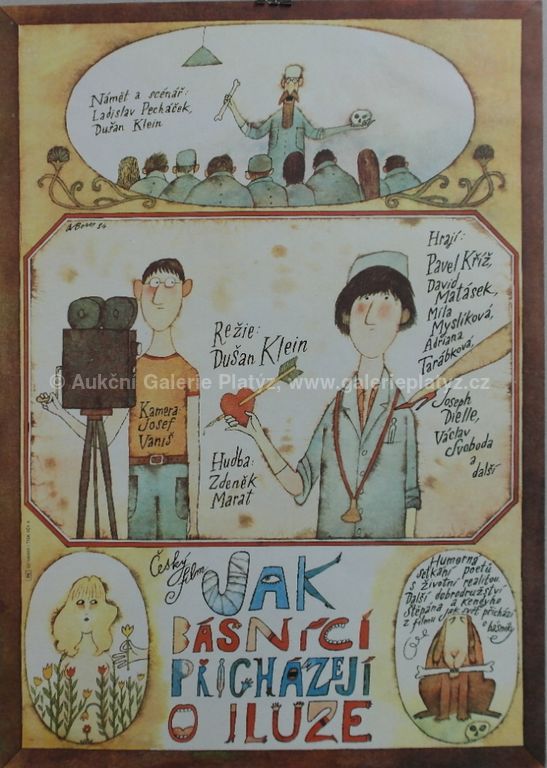 Námět a scénář:
Ladislav Pecháček,
Dušan Klein
A. Born 84
Hrají:
Pavel Kříž,
David
Matásek,
Míla
Myslíková,
Adriana
Tarábková,
Joseph
Dielle,
Václav
Svoboda
a
další
Režie:
Dušan Klein
© Aukční Galerie Platýz, www.galerieplatyz.cz
Kamera:
Josef
Vaniš
Hudba:
Zdeněk
Marat
Český
film
JAK
BÁSNÍCI
PŘICHÁZEJÍ
O ILUZE
Humorná
setkání poetů
s životní realitou.
Další dobrodružství
Štěpána a Kendyho
z filmu Jak svět přichází
o básníky